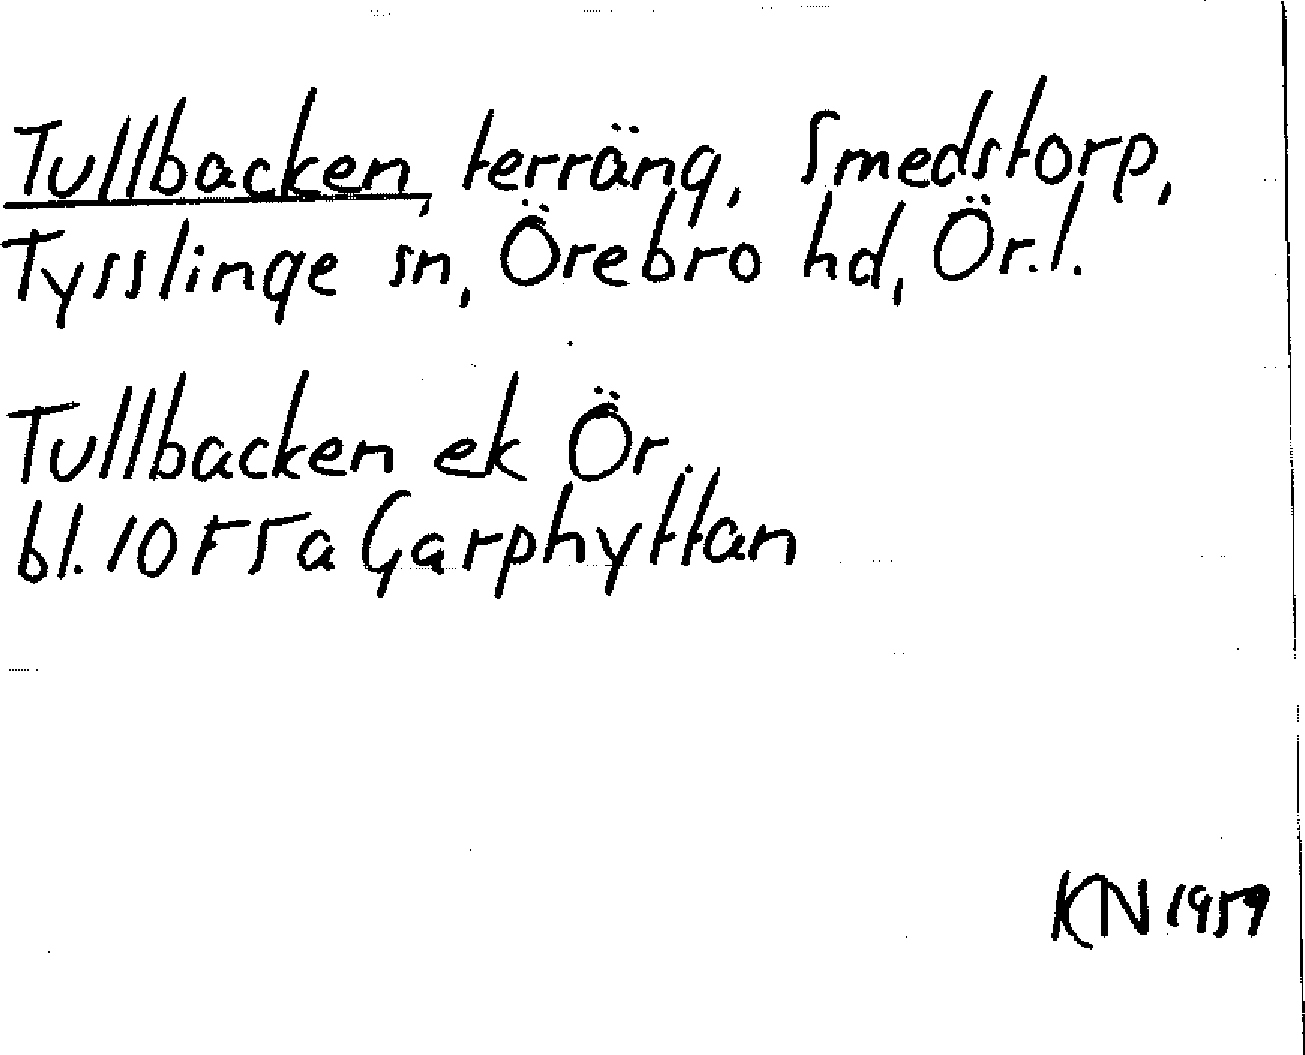 Tullbacken, terräng, Smedstorp,
Tysslinge sn, Örebro hd, Ör.l.
Tullbacken ek Ör.
bl. 10F5a Garphyttan
KN 1959